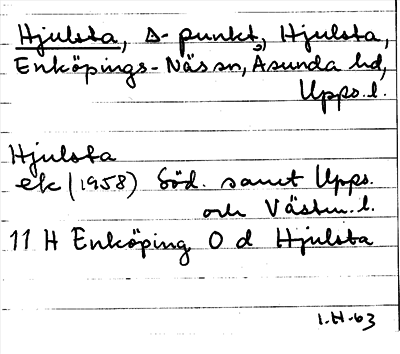 Hjulsta, s-punkt, Hjulsta,
Enköpings-Näs sn, Åsunda hd,
Upps. l.
Hjulsta
ek (1958) Söd. samt Upps.
och Västm. l.
11 H Enköping O d Hjulsta
1.H-63